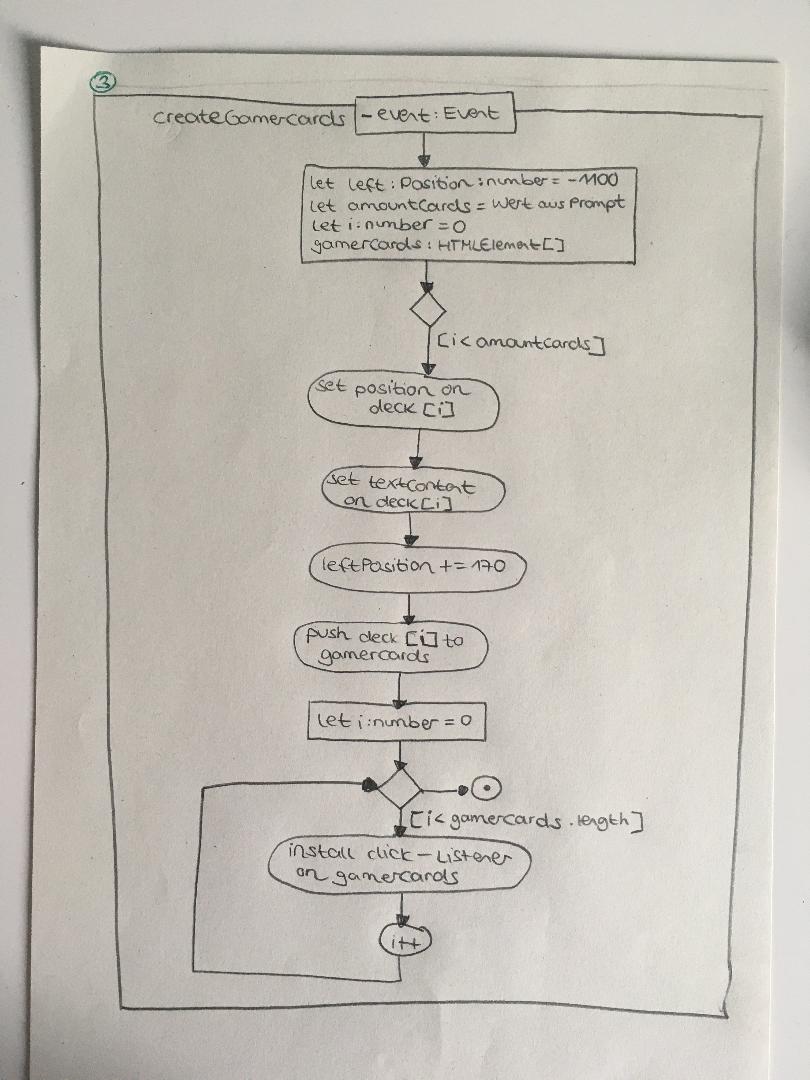 3
createGamercards
- event: Event
let left:Position:number = -1100
let amountCards = Wert aus Prompt
let i:number = 0
gamercards: HTMLElement[]
[i < amountcards]
set position on
deck [i]
set textContent
on deck[i]
leftPosition += 170
push deck [i] to
gamercards
let i:number = 0
[i < gamercards.length]
install click-Listener
on gamercards
i++